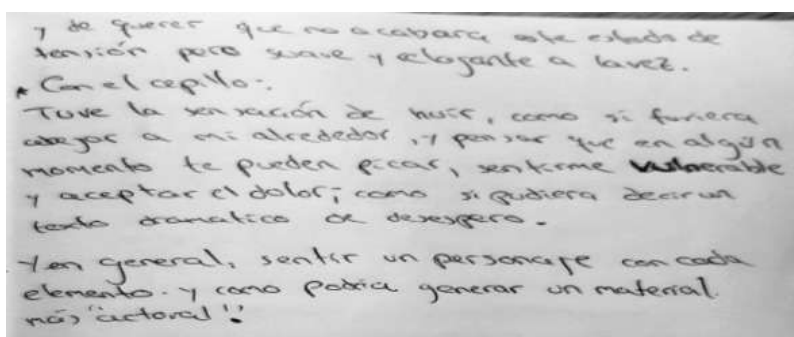 y de querer que no acabara este estado de
tensión pero suave y elegante a la vez.
• Con el cepillo:
Tuve la sensación de huir, como si tuviera
abejas a mi alrededor, y pensar que en algún
momento te pueden picar, sentirme vulnerable
y aceptar el dolor; como si pudiera decir un
texto dramatico de desespero.
Y en general, sentir un personaje con cada
elemento. y como podria generar un material
más "actoral".